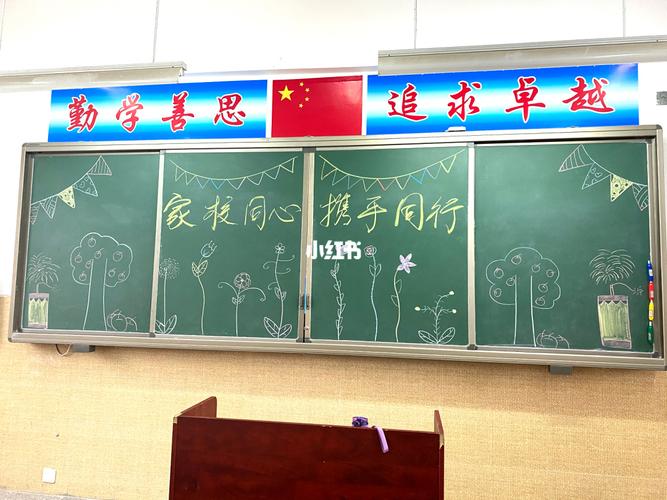 勤学善思 追求卓越
家校同心 携手同行
小红书